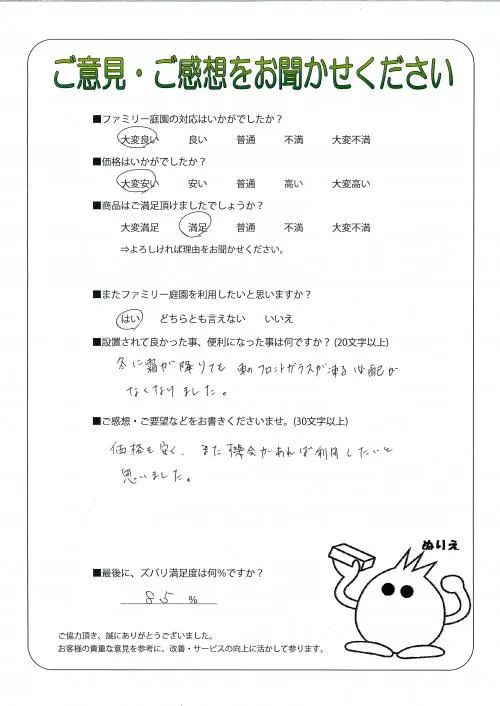 ご意見・ご感想をお聞かせください
■ファミリー庭園の対応はいかがでしたか?
大変良い 良い 普通 不満 大変不満
■価格はいかがでしたか?
大変安い 安い 普通 高い 大変高い
■商品はご満足頂けましたでしょうか?
大変満足 満足 普通 不満 大変不満
⇒よろしければ理由をお聞かせください。
■またファミリー庭園を利用したいと思いますか?
はい どちらとも言えない いいえ
■設置されて良かった事、便利になった事は何ですか? (20文字以上)
冬に霜が降りても 車のフロントガラスが凍る心配が
なくなりました。
■ご感想・ご要望などをお書きくださいませ。(30文字以上)
価格も安く、また機会があれば利用したいと
思いました。
ぬりえ
■最後に、ズバリ満足度は何%ですか?
85 %
ご協力頂き、誠にありがとうございました。
お客様の貴重な意見を参考に、改善・サービスの向上に活かして参ります。